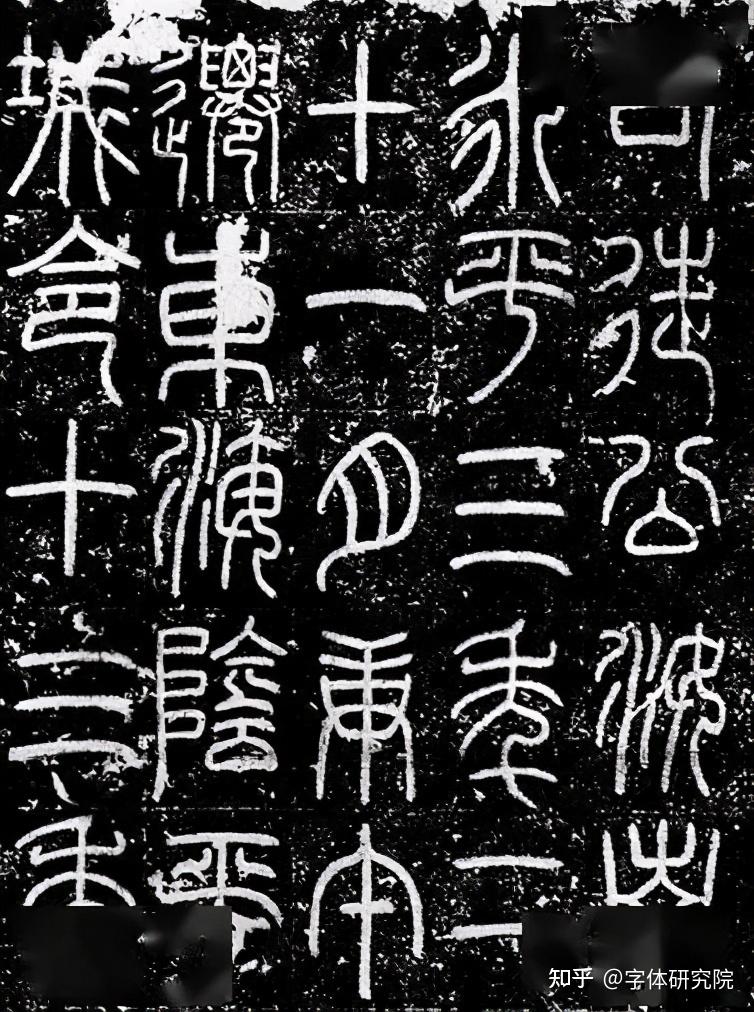 司徒公汝南
永平三年二
十一月庚午
遷東海陰平
城令十三年
知乎 @字体研究院